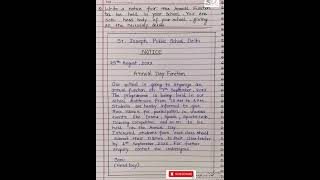 Write a notice for the Annual Function
to be held in your School. You are
Soha Head body of your School giving
all the necessary details.
St. Joseph Public School, Delhi
NOTICE
25th August, 2022
Annual Day Function
Our school is going to organize an
annual function on 7th September, 2022.
The programme is being held in our
school Auditorium from 10 AM to 4 PM.
Students are hereby informed to give
their names for participation in various
events like Drama, Speech, Dance,
Drawing Competition and so on to be
held on the Annual Day.
Interested students from each class should
submit their names to their class teacher
by 4th September, 2022. For further
enquiry contact the undersigned.
Soni
(Head Boy)